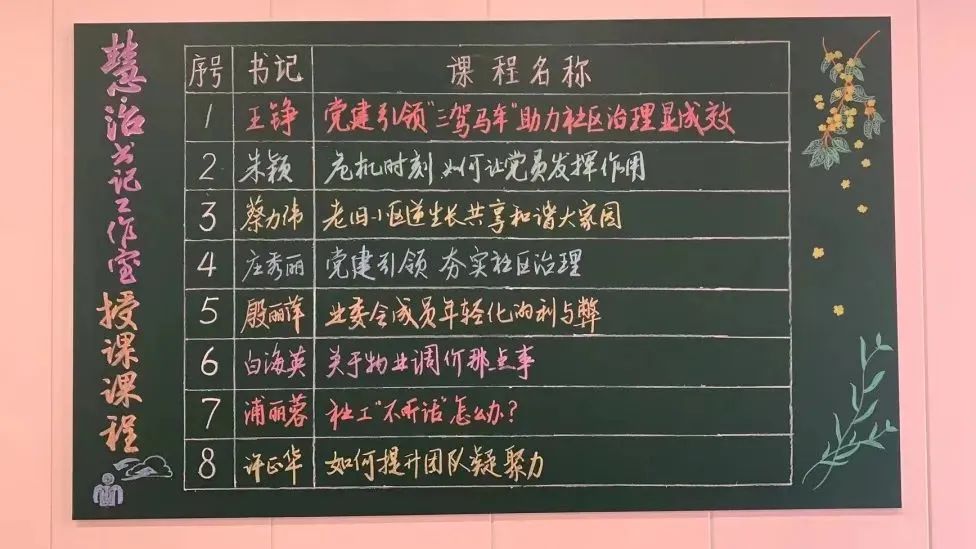 慧治书记工作室
授课课程
序号 书记 课程名称
1 王铮 党建引领"三驾马车"助力社区治理显成效
2 朱颖 危机时刻 如何让党员发挥作用
3 蔡力伟 老旧小区逆生长共享和谐大家园
4 庄秀丽 党建引领 夯实社区治理
5 殷丽萍 业委会成员年轻化的利与弊
6 白海英 关于物业调价那点事
7 浦丽蓉 社工"不听话"怎么办?
8 许正华 如何提升团队凝聚力